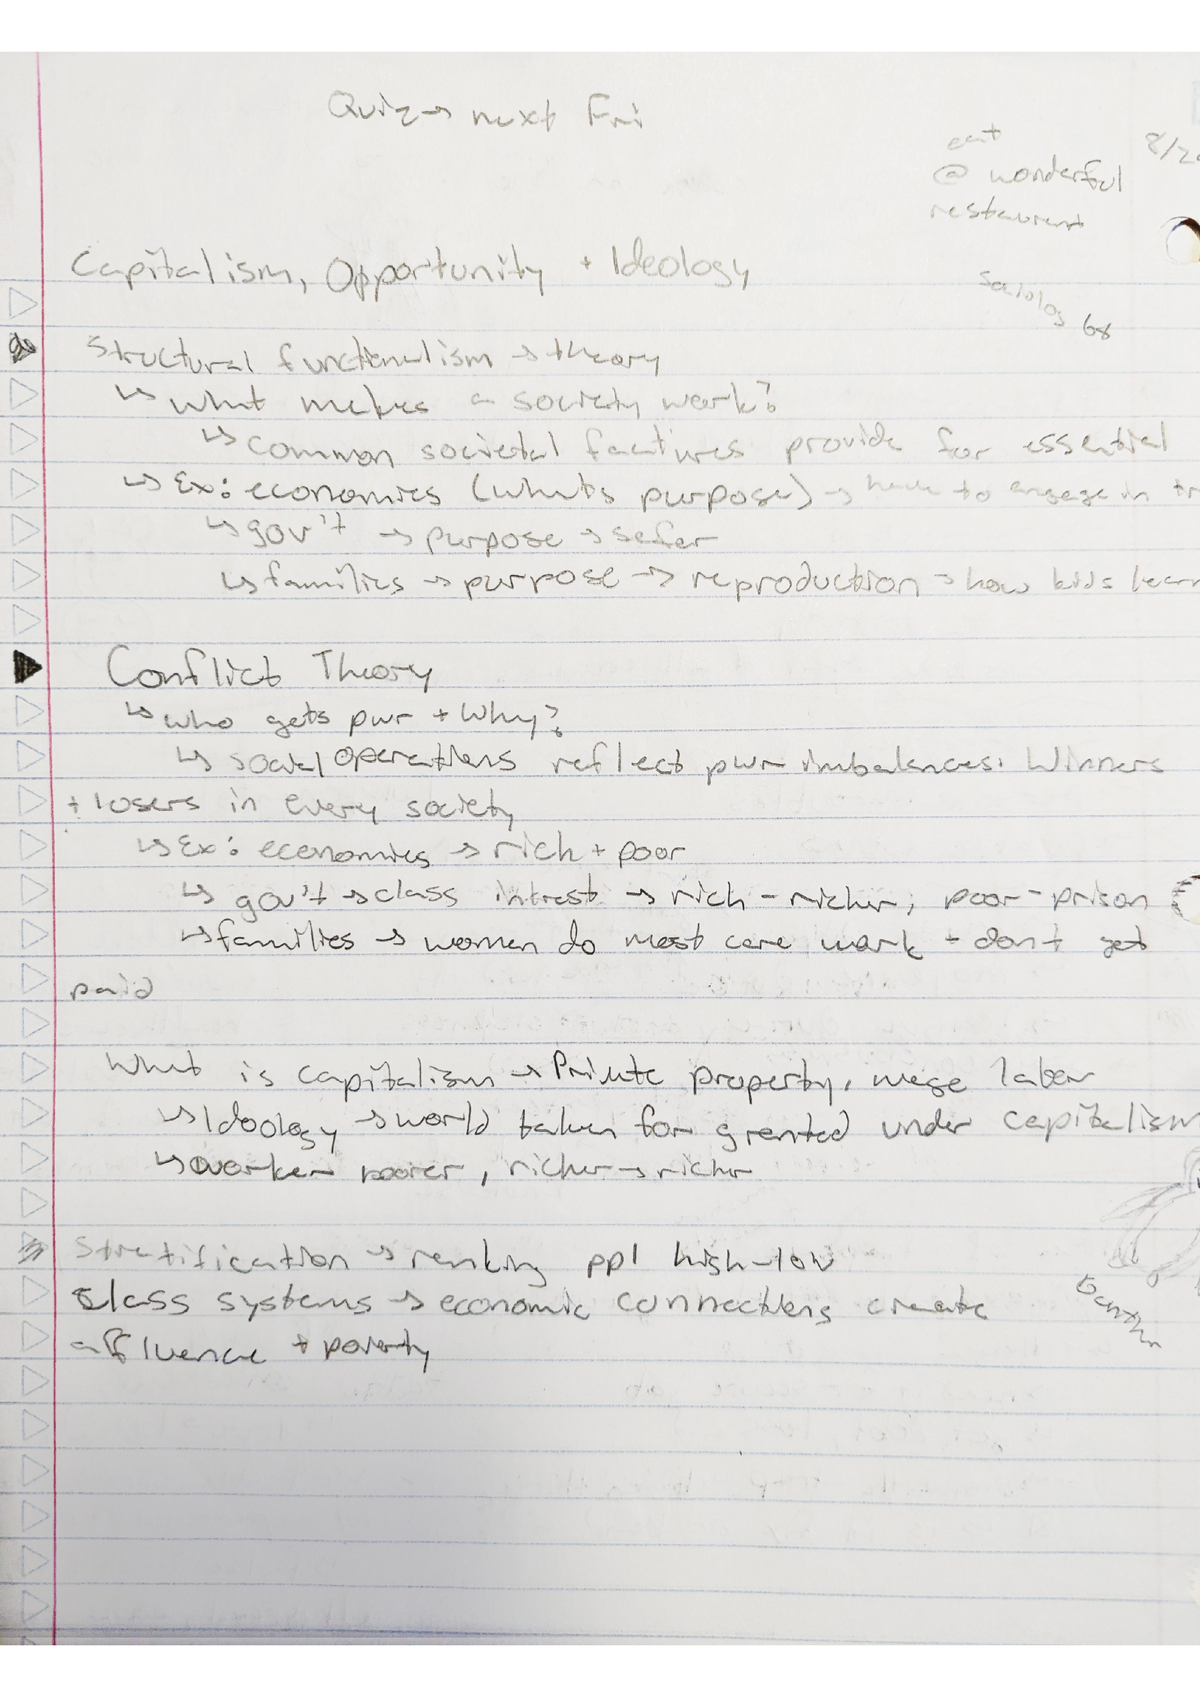 Quiz → next Fri
eat
@ wonderful
restaurent
Capitalism, Opportunity + Ideology
Structural functionalism → theory
↳ what makes a society work?
↳ common societal factures provide for essential
↳ Ex: economies (whats purpose) → have to engage in
↳ gov't → purpose → safer
↳ families → purpose → reproduction → how kids learn
Conflict Theory
↳ who gets pwr + why?
↳ social operations reflect pwr imbalances. Winners
+ losers in every society
↳ Ex: economies → rich + poor
↳ gov't → class intrest → rich - richer; poor - prison
↳ families → women do most care work + don't get
paid
What is capitalism → Private property, wage labor
↳ Ideology → world taken for granted under capitalism
↳ worker poorer, richer → richer
Stratification → ranking ppl high-low
Class systems → economic connections create
affluence + poverty